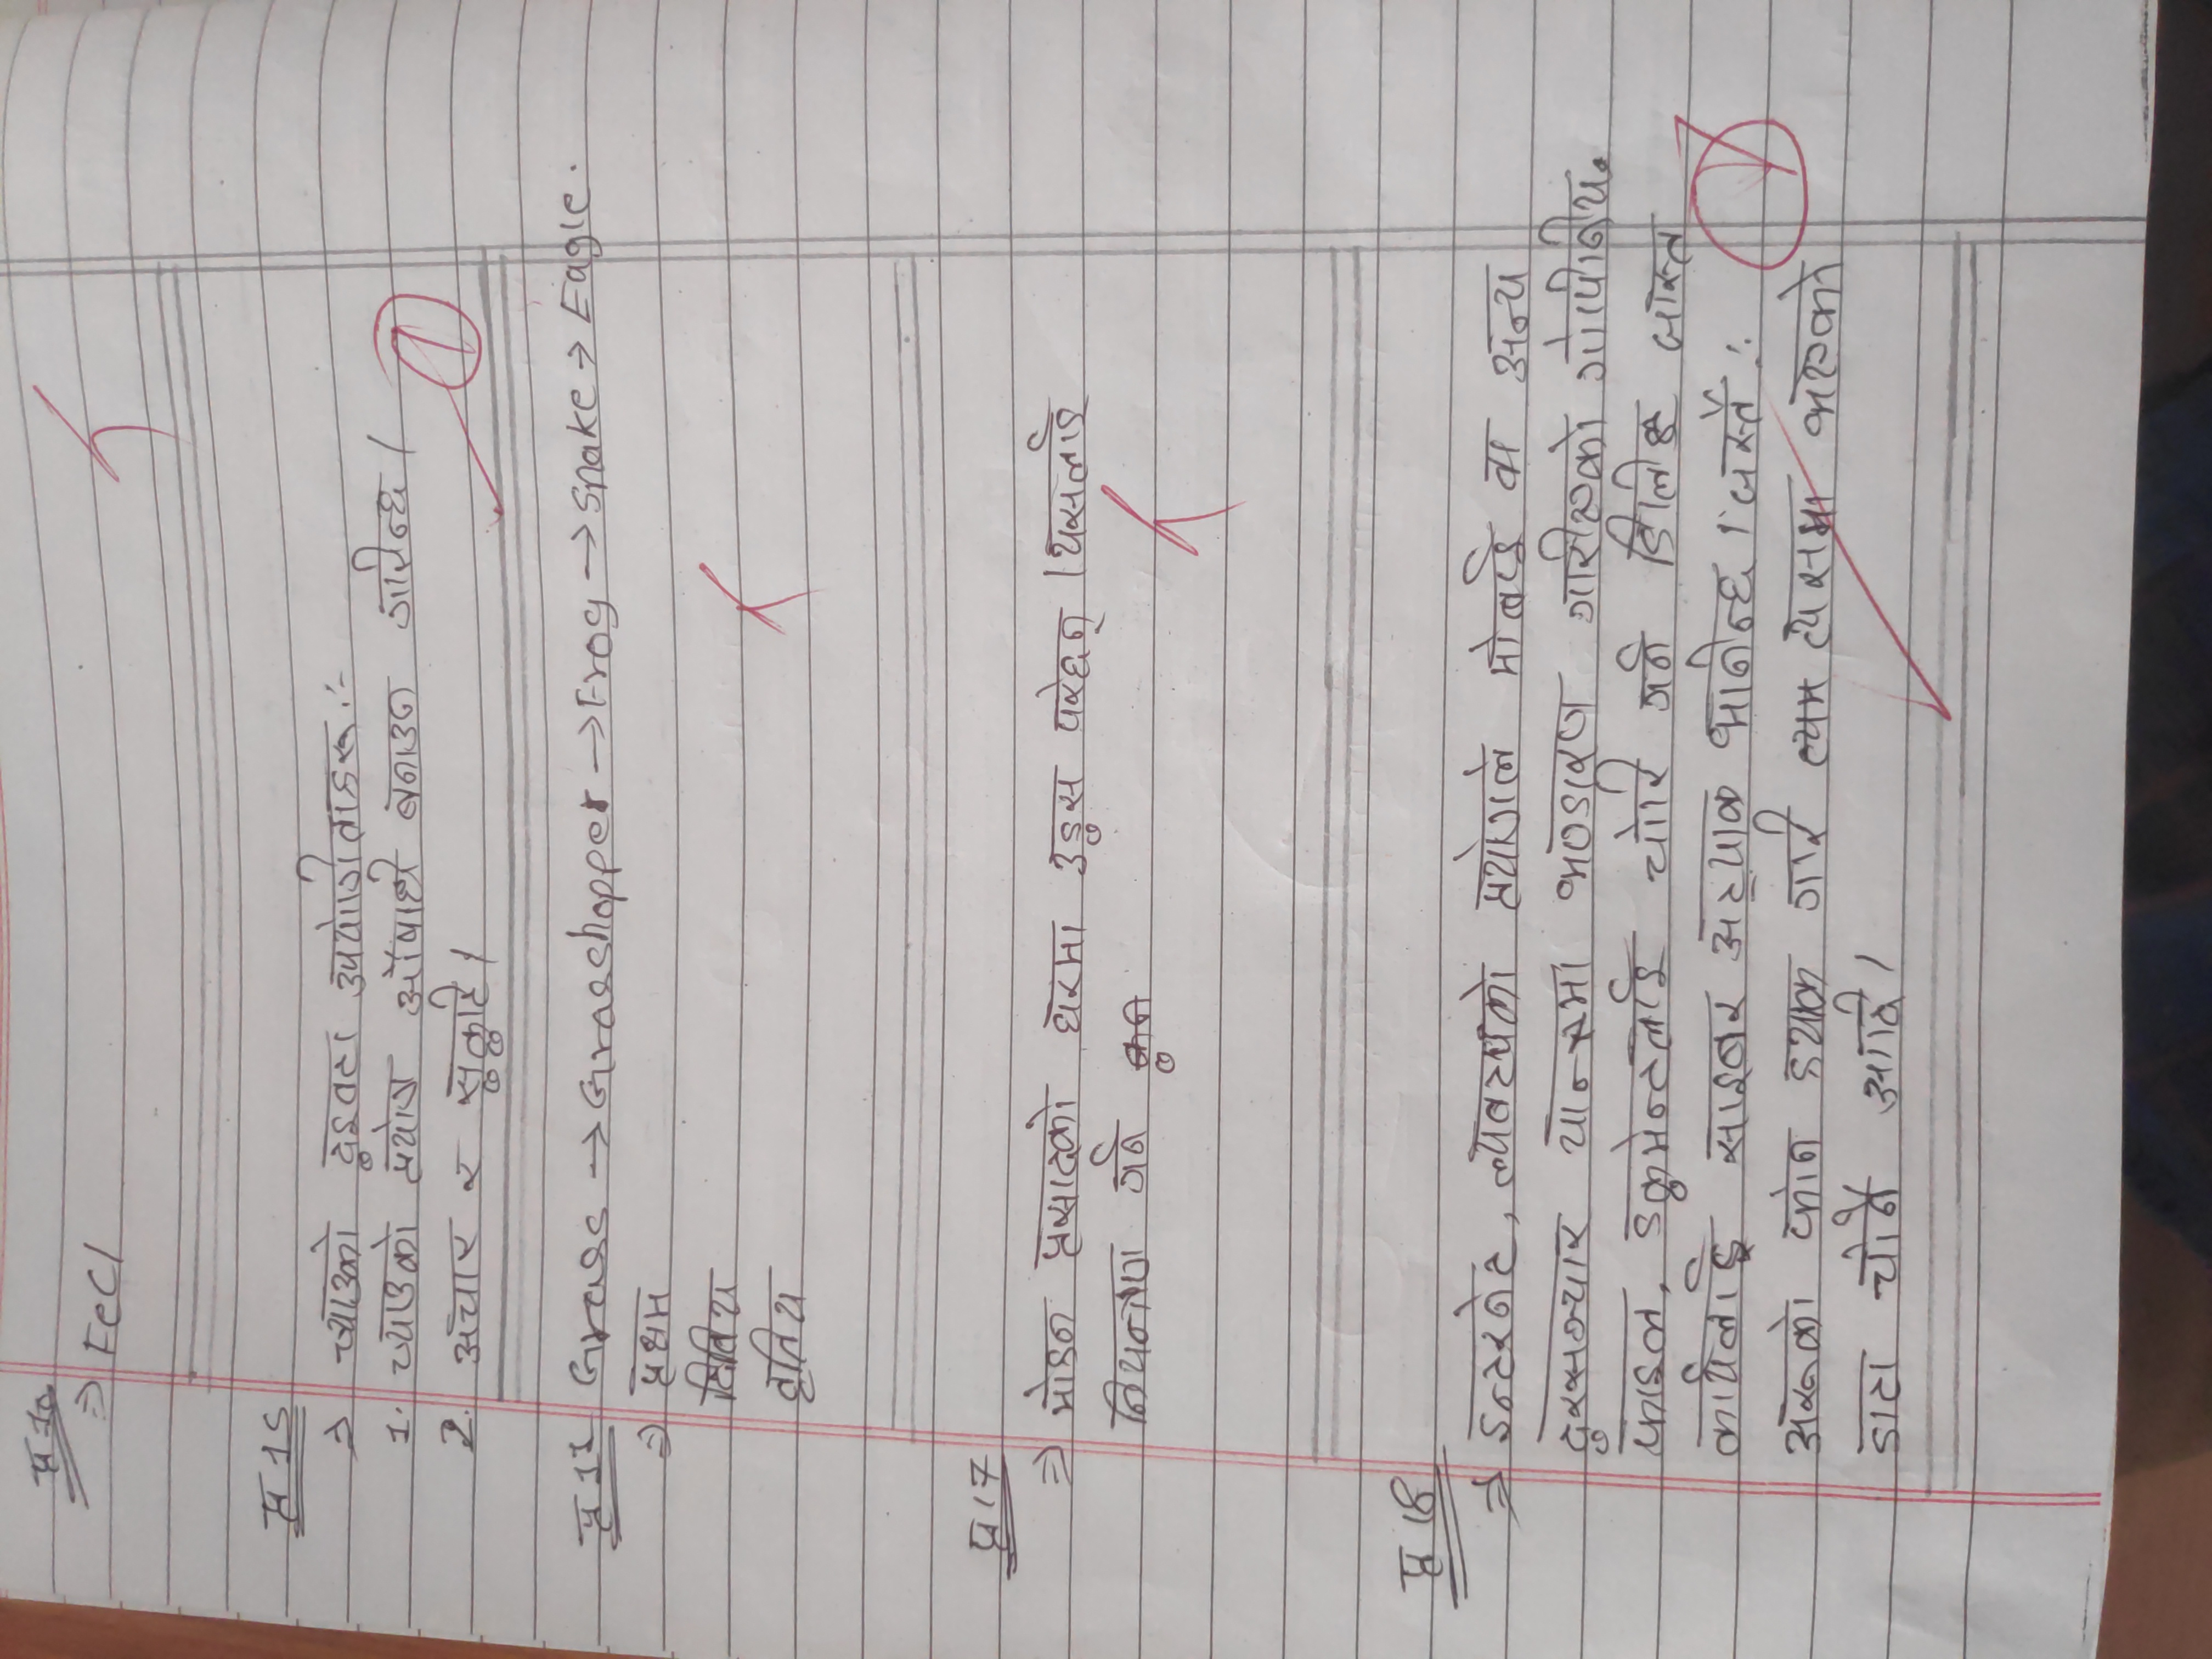 प्र 10
⇒ FeCl
प्र 15
⇒ च्याउको दुइवटा उपयोगिताहरू :-
1. च्याउको प्रयोग औषधि बनाउन गरिन्छ ।
2. अचार र सुकुटि ।
1
प्र 11 Grass → Grasshopper → Frog → Snake → Eagle.
⇒ प्रथम
द्वितिय
तृतिय
प्र 17
⇒ मोहन प्रसादको घरमा उडुस परेछन् । यसलाई
नियन्त्रण गर्न कुन
प्र 18
⇒ इन्टरनेट, ल्यवटपको प्रयोगले मोबाई वा अन्य
दुरसञ्चार यान्त्रमा भण्डारण गरिएको गोपीनीय
फाइल, डकुमेन्टलाई चोरि गर्न डिलिट जस्त
कार्यलाई साइबर अट्याक भनिन्छ । जस्तै :
अरूको फोन ह्याक गरि त्यसमा भएको
डाटा चोर्ने आदि ।